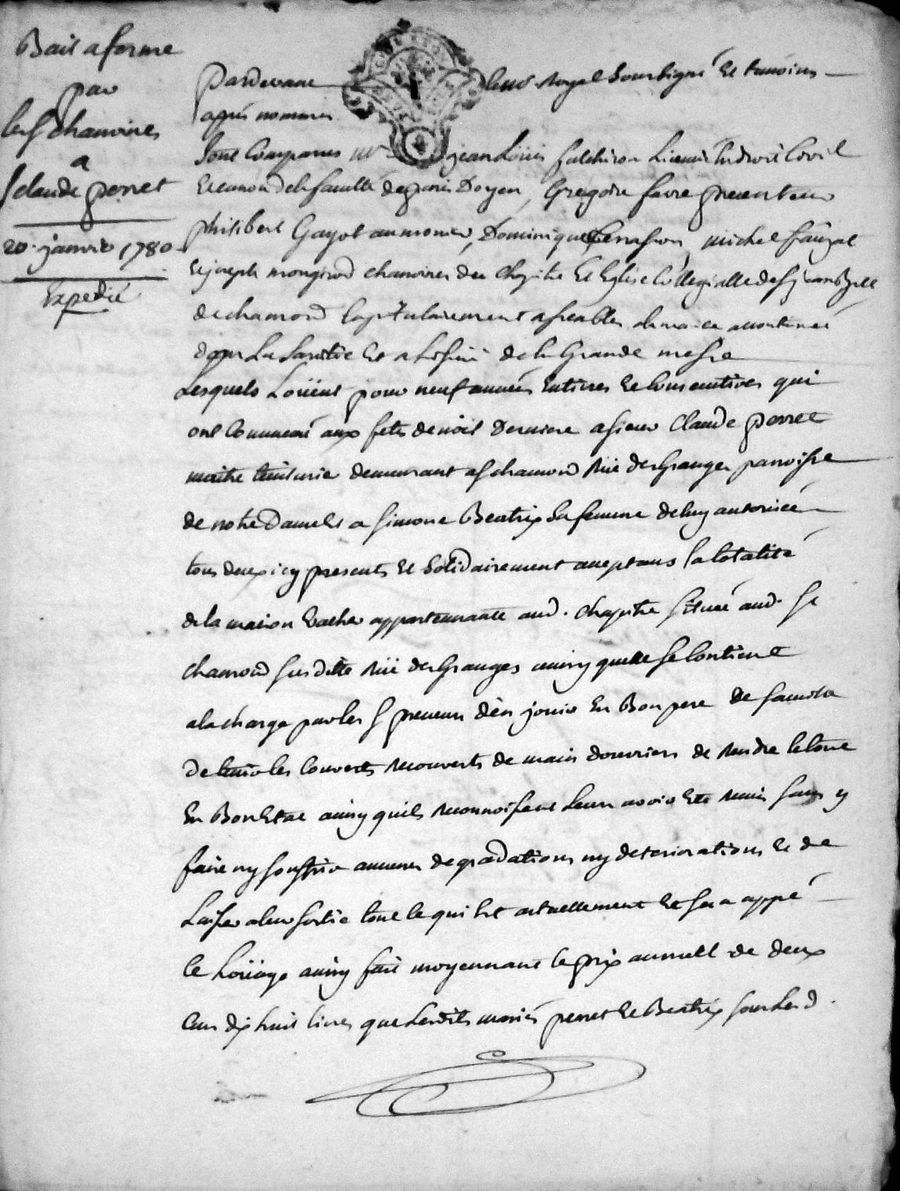 Bail a ferme
par
les s chanoines
a
s Claude perret
20. janvier 1780
Expedié
Pardevant le no.re Royal Soussigné Et temoins
apres nommés
Sont Comparus jean Loüis Licentié Civil
de la faculté de paris Doyen, Gregoire favre precenteur
philibert Gayot aumonier, Dominique michel
Et joseph mongirod chanoines du Chapitre Et Eglise Collegialle de
de chamond Capitulairement assemblés
dans La Et a L'issüe de la Grande messe
Lesquels Loüent pour neuf années Entieres Et Consecutives qui
ont Commencé aux fetes de noel Derniere a sieur Claude perret
maitre teinturier demeurant a s chamond Rüe des Granges parroisse
de notre Dame Et a simone Beatrix Sa femme de luy autorisée
tous deux icy presents Et Solidairement acceptans la totalité
de la maison appartenante aud. Chapitre située aud. st
chamond susditte Rüe des Granges ainsy quelle se Contient
a la charge par les s preneurs d'en jouir En Bon pere de famille
de tenir les Couverts recouverts de main d'ouvriers de rendre le tout
En Bon Etat ainsy quils reconnoissent Leur avoir Eté remis sans y
faire ny souffrir aucunes degradations ny deteriorations Et de
Laisser a leur sortie tout ce qui Est actuellement Et sera appé
le Loüage ainsy fait moyennant le prix annuell de deux
cens dix huit livres que Lesdits mariés perret Et Beatrix sous Led.